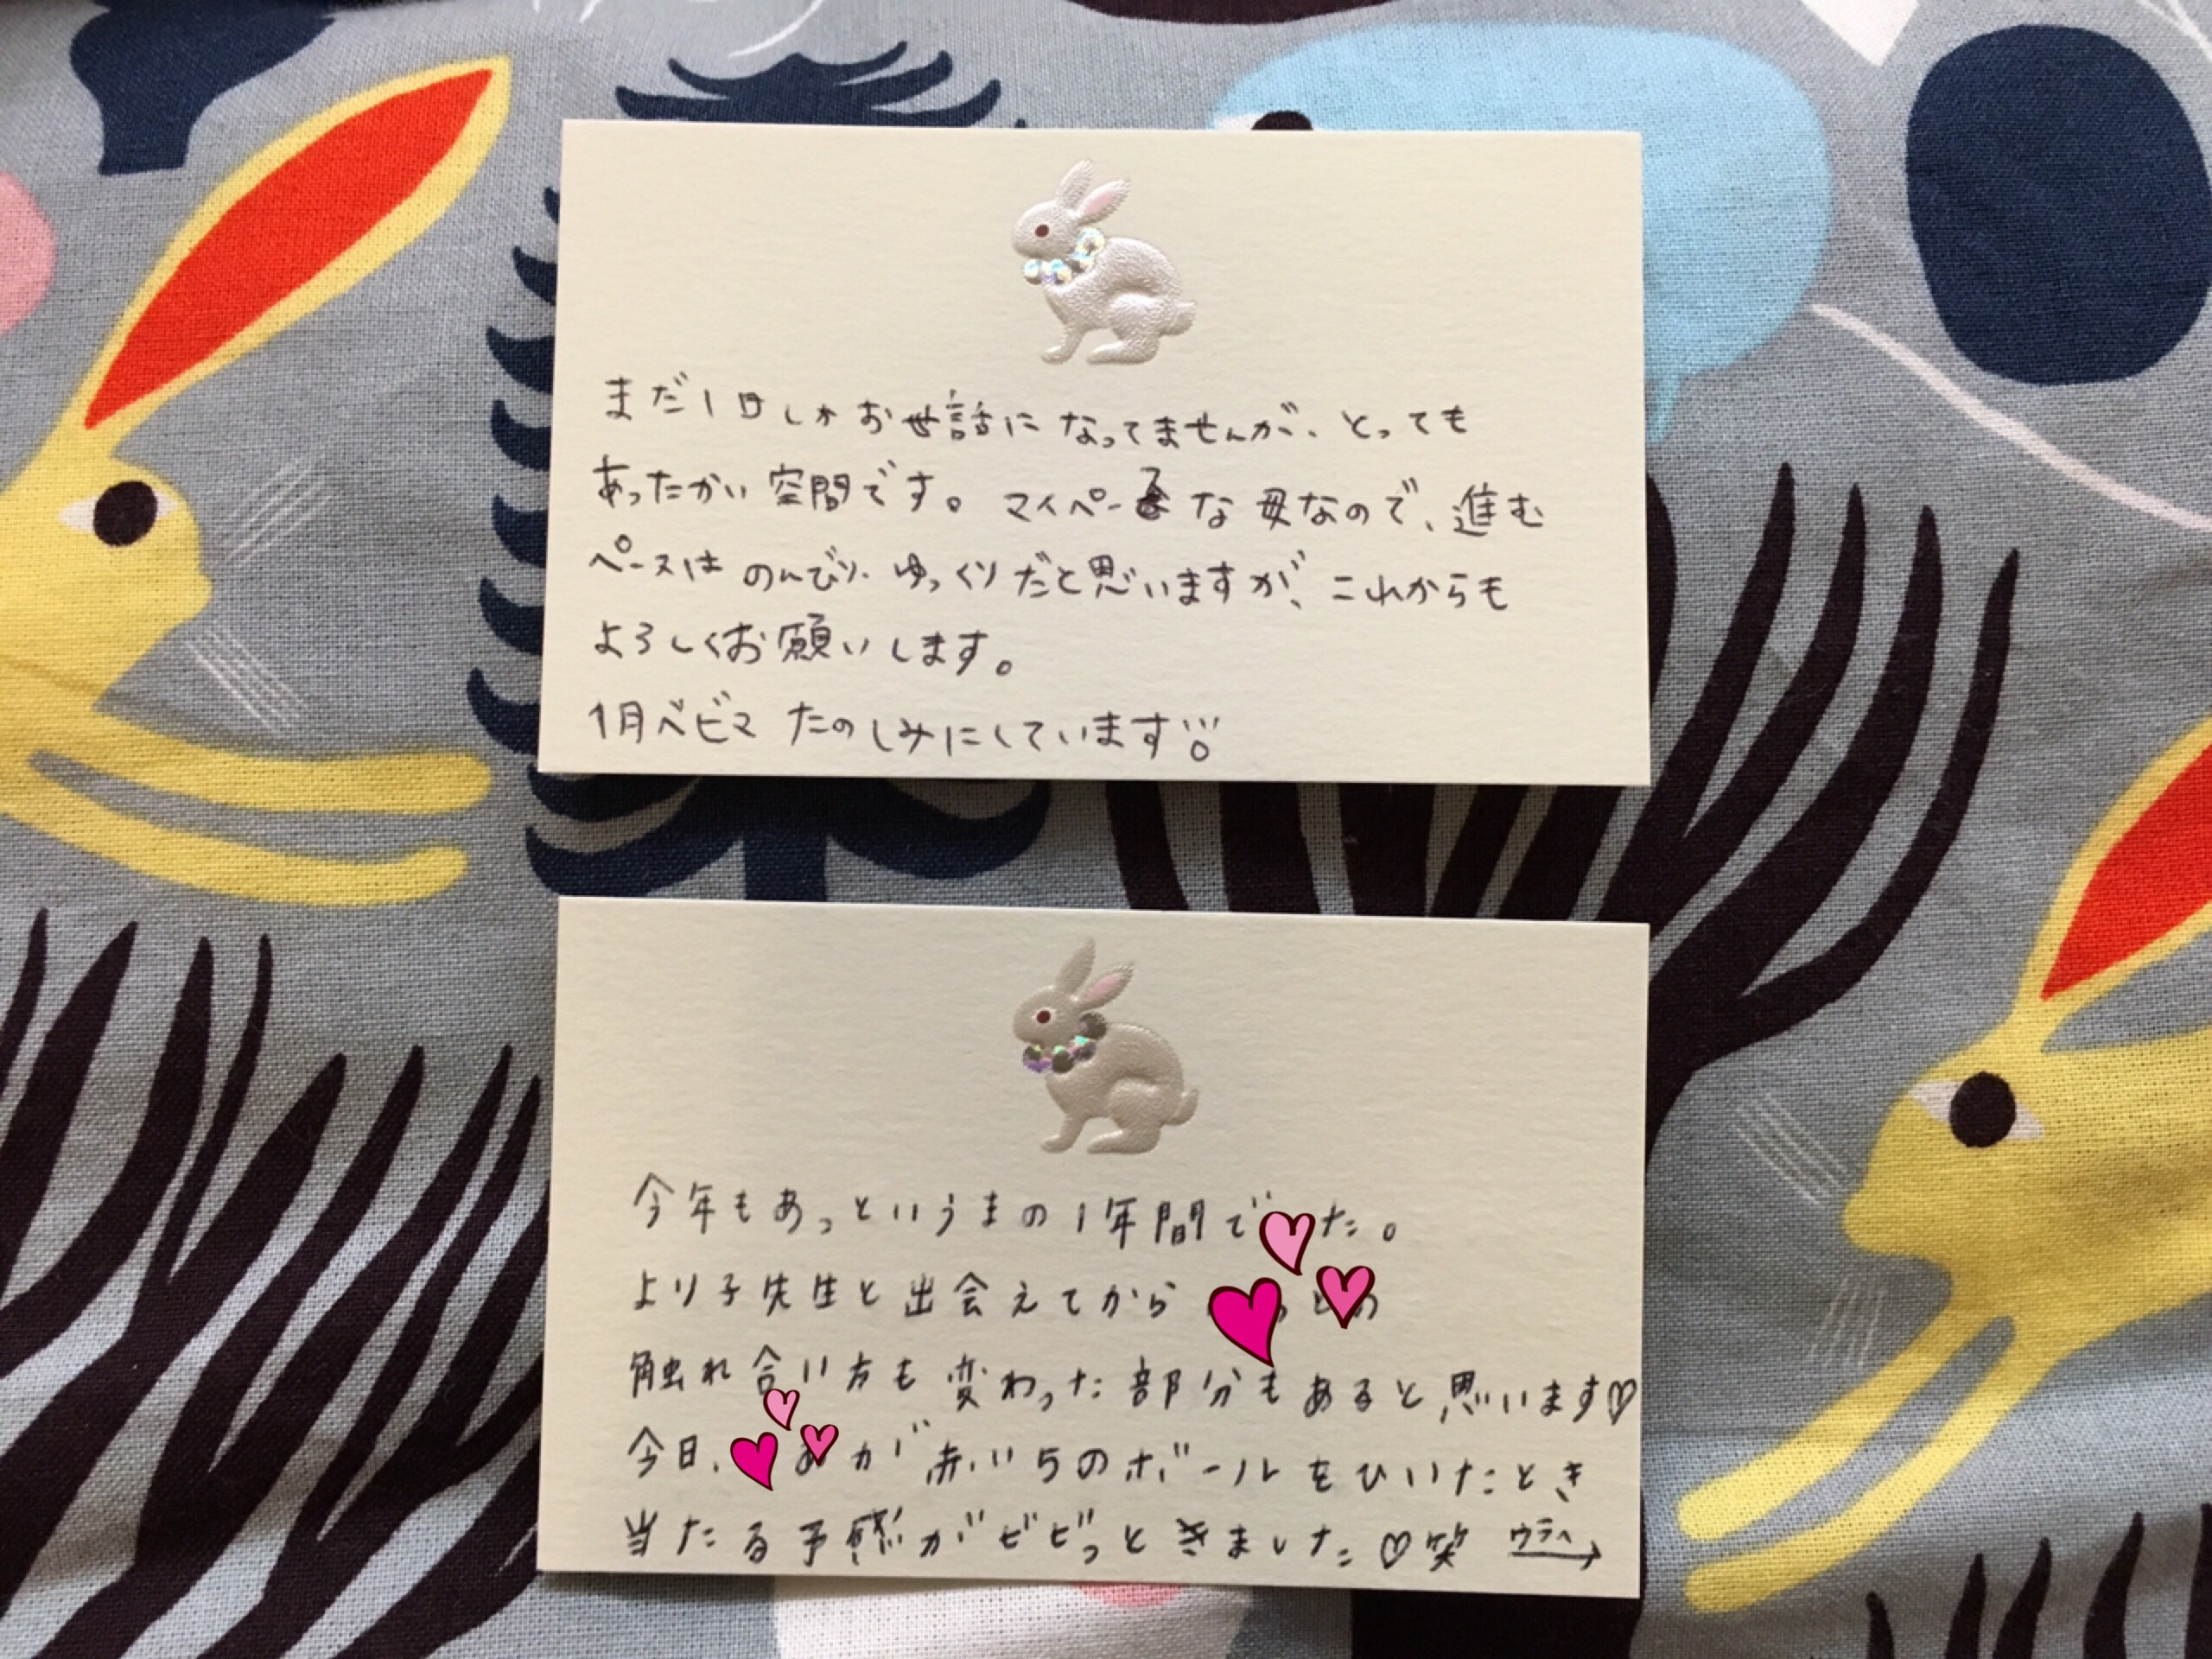 まだ1日しかお世話になってませんが、とっても
あったかい空間です。マイペーな母なので、進む
ペースはのんびり、ゆっくりだと思いますが、これからも
よろしくお願いします。
1月ベビマ たのしみにしています
今年もあっというまの1年間でた。
より子先生と出会えてから との
触れ合い方も変わった部分もあると思います♡
今日、が赤い5のボールをひいたとき
当たる予感がビビっときました♡笑 ウラへ→